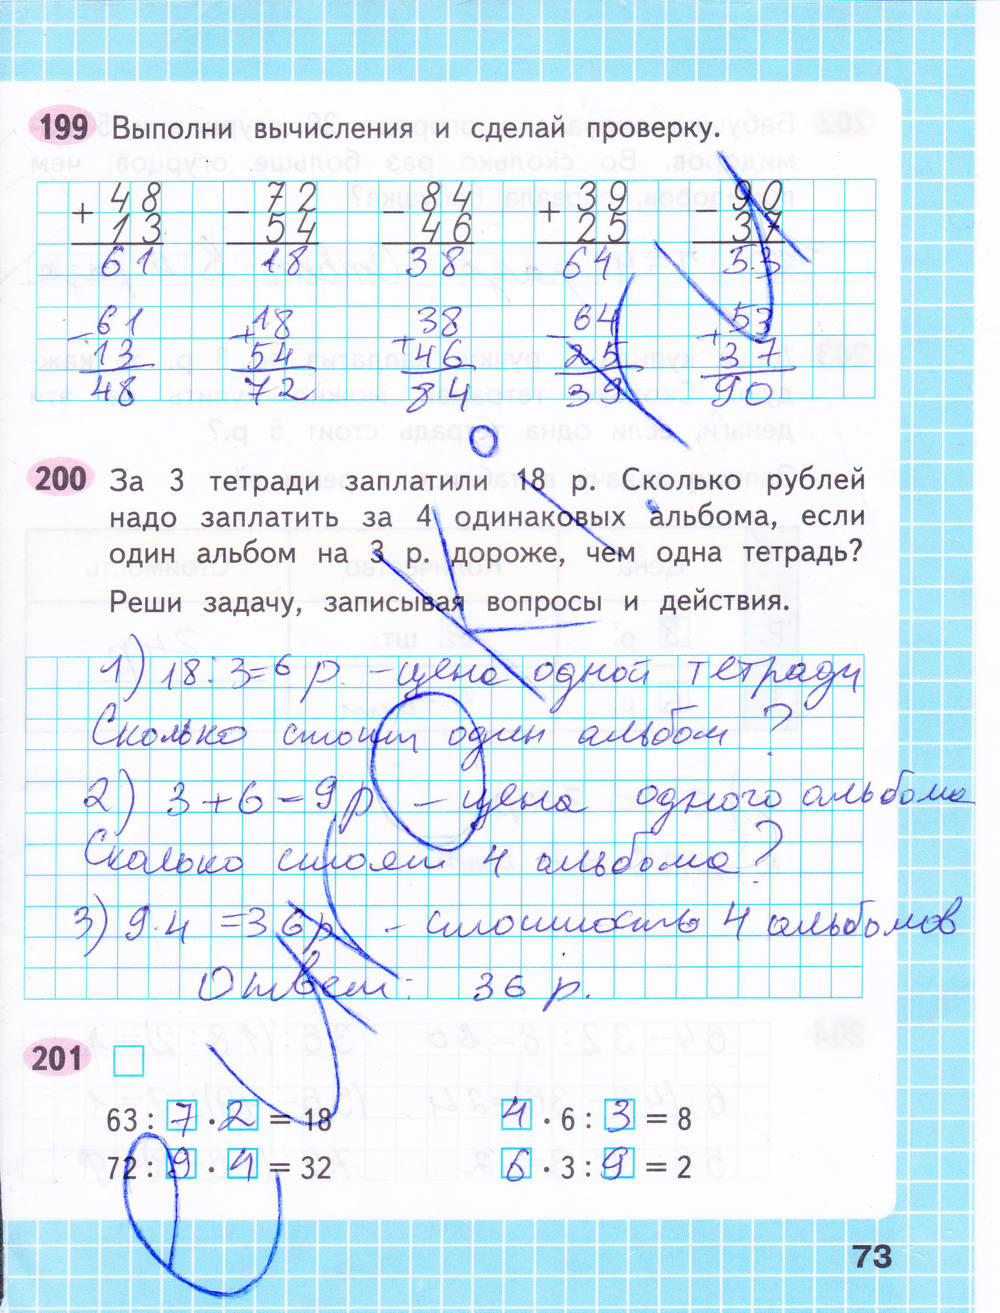 199 Выполни вычисления и сделай проверку.
+ 48 − 72 − 84 + 39 − 90
13 54 46 25 37
61 18 38 64 53
− 61 + 18 + 38 − 64 + 53
13 54 46 25 37
48 72 84 39 90
200 За 3 тетради заплатили 18 р. Сколько рублей
надо заплатить за 4 одинаковых альбома, если
один альбом на 3 р. дороже, чем одна тетрадь?
Реши задачу, записывая вопросы и действия.
1) 18 : 3 = 6 р. – цена одной тетради
Сколько стоит один альбом ?
2) 3 + 6 = 9 р – цена одного альбома
Сколько стоят 4 альбома ?
3) 9 · 4 = 36 р – стоимость 4 альбомов
Ответ : 36 р.
201
63 : 7 · 2 = 18 4 · 6 : 3 = 8
72 : 9 · 4 = 32 6 · 3 : 9 = 2
73